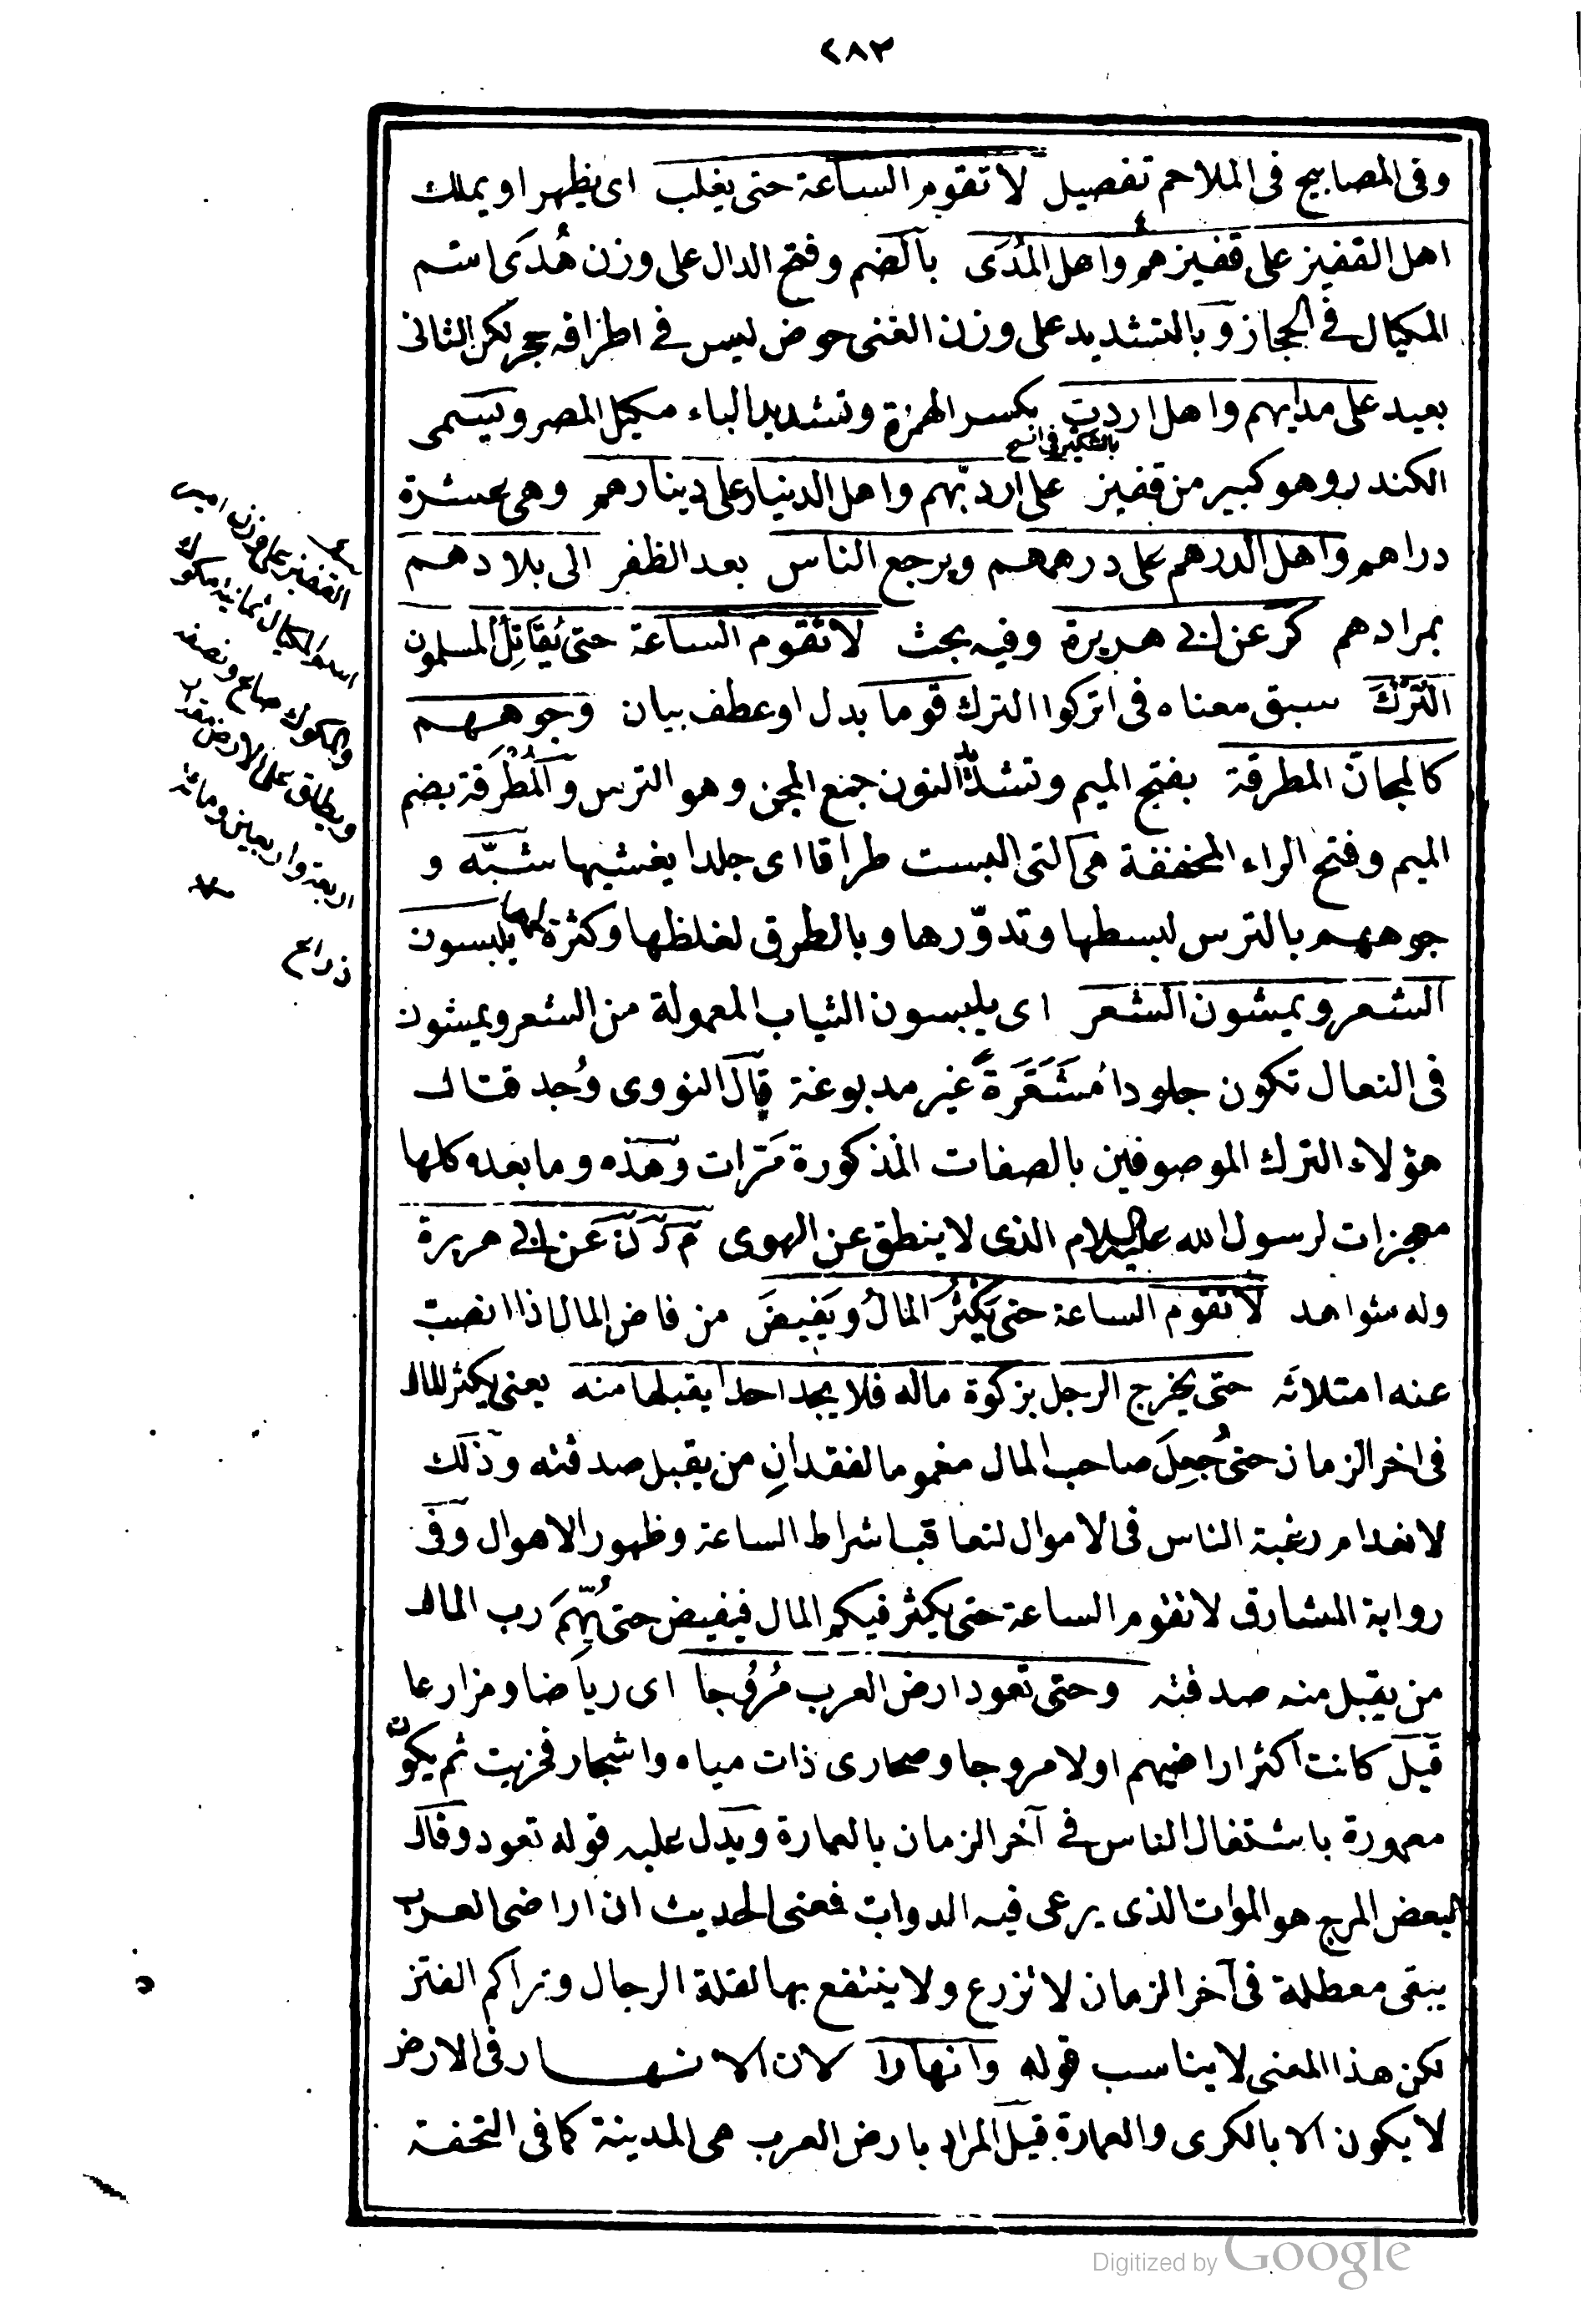 ٢٨٣
وفى المصابيح فى الملاحم تفصيل لا تقوم الساعة حتى يغلب اى يظهر او يملك
اهل القفيز على قفيزهم واهل المُدَى بالضم وفتح الدال على وزن هُدَى اسم
المكيال فى الحجاز وبالتشديد على وزن الغنى حوض ليس فى اطرافه حجر لكن الثانى
بعيد على مدايهم واهل اردب بكسر الهمزة وتشديد الباء مكيل المصر ويسمى
بالتنكير فى النسخ
الكندر وهو كبير من قفيز على اردبّهم واهل الدينار على دينارهم وهى عشرة
دراهم واهل الدرهم على درهمهم ويرجع الناس بعد الظفر الى بلادهم
بمرادهم كر عن ابى هريرة وفيه بحث لا تقوم الساعة حتى يُقَاتِلُ المسلمون
التُرْكَ سبق معناه فى اتركوا الترك قوما بدل او عطف بيان وجوههم
كالمجانّ المطرقة بفتح الميم وتشديد النون جمع المجن وهو الترس والمُطْرَقة بضم
الميم وفتح الراء المخففة هى التى البست طراقا اى جلدا يغشيها شبّه و
جوههم بالترس لبسطها وتدوّرها وبالطرق لغلظها وكثرة لحمها يلبسون
الشعر ويمشون الشعر اى يلبسون الثياب المعمولة من الشعر ويمشون
فى النعال تكون جلودا مُشَعَّرَةً غير مدبوغة قال النووى وُجد قتال
هؤلاء الترك الموصوفين بالصفات المذكورة مَرّات وهذه وما بعده كلها
معجزات لرسول الله عليه السلام الذى لا ينطق عن الهوى م د ن عن ابى هريرة
وله شواهد لا تقوم الساعة حتى يَكْثُرَ المالُ ويَفِيضَ من فاض المال اذا انصب
عنه امتلائه حتى يخرج الرجل بزكوة ماله فلا يجد احدا يقبلها منه يعنى يكثر المال
فى اخر الزمان حتى جُعِلَ صاحب المال مغموما لفقدانِ من يقبل صدقته وذلك
لانعدام رغبة الناس فى الاموال لتعاقب اشراط الساعة وظهور الاهوال وفى
رواية المشارق لا تقوم الساعة حتى يكثر فيكم المال فيفيض حتى يُهِمَّ رب المال
من يقبل منه صدقته وحتى تعود ارض العرب مُرُوجا اى رياضا ومزارعا
قيل كانت اكثر اراضيهم اولا مروجا وصحارى ذات مياه واشجار فخربت ثم يكون
معمورة باشتغال الناس فى آخر الزمان بالعمارة ويدل عليه قوله تعود وقال
البعض المرج هو الموات الذى يرعى فيه الدواب فمعنى الحديث ان اراضى العرب
يبقى معطلة فى آخر الزمان لا تزرع ولا ينتفع بها لقلة الرجال وتراكم الفتن
لكن هذا المعنى لا يناسب قوله وانهارا لان الانهار فى الارض
لا يكون الا بالكرى والعمارة قيل المراد بارض العرب هى المدينة كما فى التحفة
القفيز على وزن امير
اسم المكيال ثمانية مكوك
والمكوك صاع ونصفه
ويطلق على الارض مقدار
اربعة واربعين ومائة
ذراع
Digitized by Google